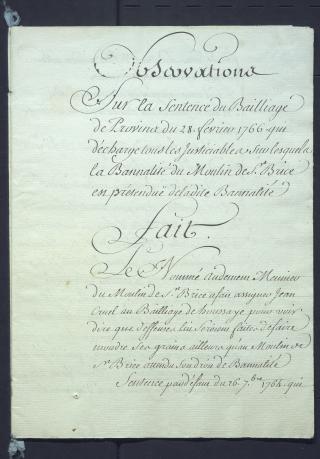 Observations
Sur la Sentence du Bailliage
de Provins du 28. fevrier 1766 qui
décharge tous les Justiciables sur lesquels
la Bannalité du Moulin de St. Brice
est prétenduë de ladite Bannalité
fait.
Le Nommé Meunier
du Moulin de St. Brice a fait assigner Jean
au Bailliage de pour voir
dire que deffenses lui seroient faites de faire
moudre ses grains ailleurs qu'au Moulin de
St. Brice attendu son droit de Bannalité
Sentence par défaut du 26. 7.bre 1764 qui